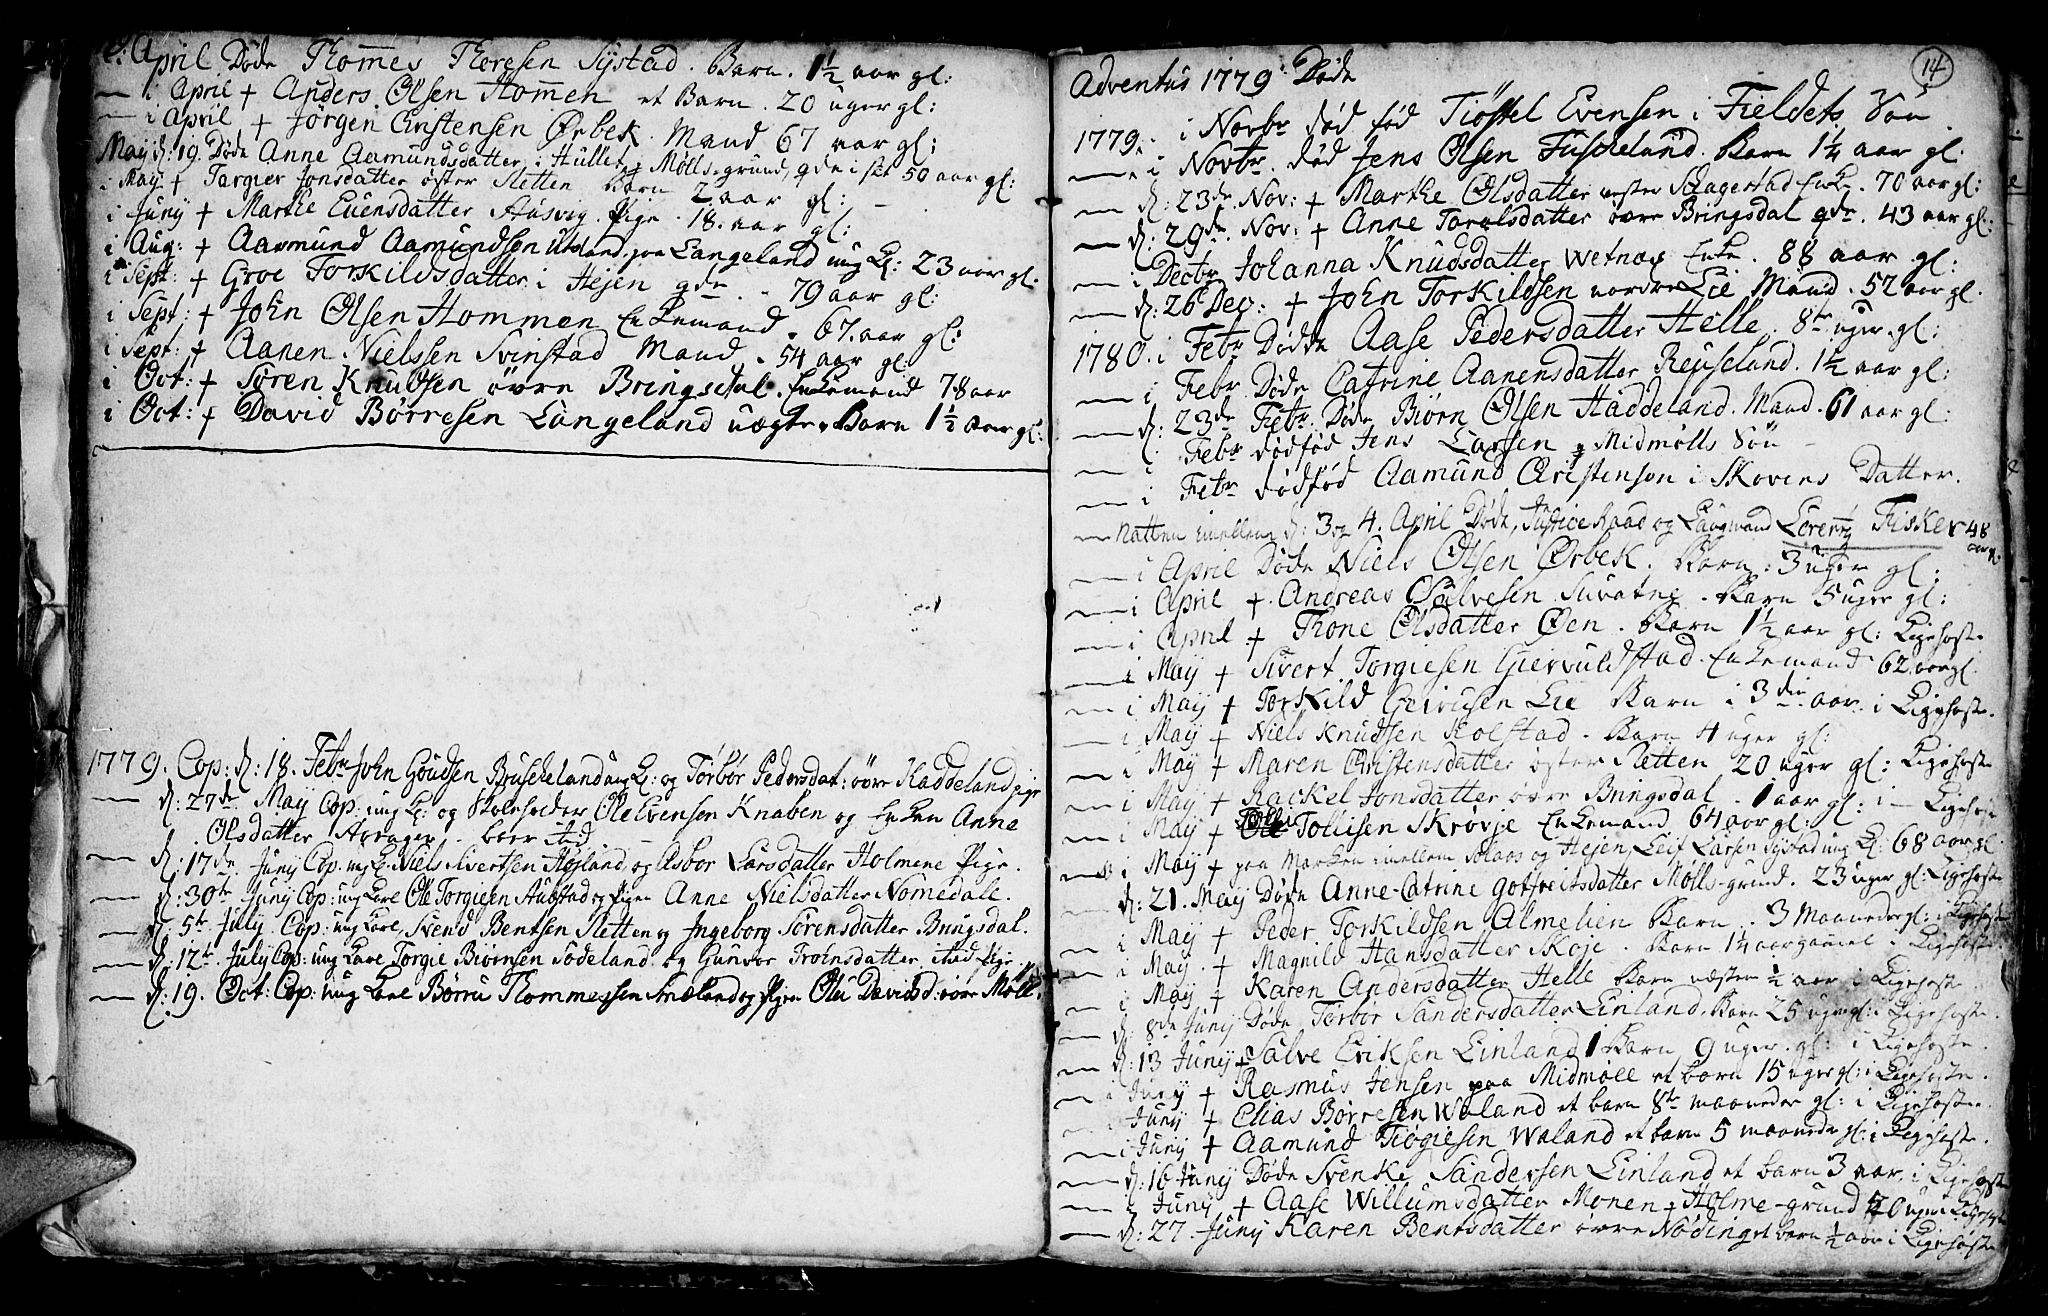 i April Døde Thom̄es Thoresen Systad. Barn. 1½ aar gl:
— i April + Anders Olsen Hom̄en et Barn. 20 uger gl:
— i April + Jörgen Christensen Ørbek. Mand 67 aar gl:
May d: 19. Døde Anne Aamundsdatter i Hullet, Mølls-grund, gde i sit 50 aar gl:
i May + Targier Jonsdatter øster Sletten Barn 2 aar gl:
i Juny + Marthe Evensdatter Ausvig. Pige. 18. aar gl:
i Aug: + Aasmund Aamundsen Utsland paa Langeland ung K: 23 aar gl:
i Sept: + Groe Torkildsdatter i Hejen gde 79 aar gl:
i Sept: + John Olsen Hommen Enkemand. 67. aar gl:
i Sept: + Aanen Nielssen Svinstad Mand. 54 aar gl:
i Oct: + Sören Knudsen övre Bringsdal. Enkemand 78 aar
i Oct: + David Börresen Langeland uægte Barn 1½ aar gl:
1779. Cop: d: 18. Febr John Goudsen Bruskeland ung K: og Torbör Pedersdat: övre Haddeland pige
— d: 27de May Cop: ung K: og Skoleholder Ole Evensen Knaben og Enken Anne
Olsdatter
— d: 17de Juny Cop: ung K: Niels Sivertsen Høyland og Asbor Larsdatter Holmene Pige.
— d: 30te Juny Cop: ung Karl Ole Torgiesen Aubstad og Pigen Anne Nielsdatter Nomedall.
— d: 5te July. Cop: ung Karl Svend Bentsen Sletten og Ingeborg Sörensdatter Bringsdal.
— d: 12te July Cop: ung Karl Torgie Biörnsen Södeland og Gunvor Troensdatter ibid Pige
— d: 19. Oct: Cop: ung Karl Börru Thommessen Smeland og Pigen Olu Davidsd: övre Möll.
14
Adventus 1779. Døde
1779. i Novbr død fød Tiöstel Evensen i Fieldets Sön.
— i Novbr. død Jens Olsen Fuskeland. Barn 1¼ aar gl.
— d: 23de Nov: + Marthe Olsdatter vester Skagestad Enke. 70 aar gl:
— d: 29de Nov: + Anne Taralsdatter övre Bringsdal gde. 43 aar gl:
— i Decbr Johanna Knudsdatter Wetnæs Enke. 88 aar gl:
— d: 26 Dec: + John Torkildsen nordre Lie Mand. 52 aar gl.
1780. i Febr Døde Aase Pedersdatter Helle. 8te uger gl:
— i Febr Døde Catrine Aanensdatter Repseland. 1½ aar gl:
— d: 23de Febr. Døde Biörn Olsen Haddeland. Mand. 61 aar gl:
— i Febr dødfød Jens Larsen Midmölls Sön
— i Febr dødfød Aamund Christensen i Skovens Datter.
— Natten imellem d: 3 og 4. April Døde, Justice Raad og Laugmand Lorentz Fisker 48
aar gl.
— i April Døde Niels Olsen Ørbek. Barn. 3 uger gl:
— i April + Andreas Salvesen Suvatne. Barn 5 uger gl:
— i April + Thone Olsdatter Øen. Barn 1½ aar gl: Kigehoste
— i May + Sivert Torgiesen Giervuldstad. Enkemand 62 aar gl.
— i May + Torkild Lie Barn i 3die aar. i Kigehoste.
— i May + Niels Knudsen Kolstad. Barn 4 uger gl:
— i May + Maren Christensdatter öster Sletten 20 uger gl: Kigehoste
— i May + Rackel Jonsdatter övre Bringsdal. 1 aar gl: i — Kigehoste
— i May + Tollisen Skrövje Enkemand 64 aar gl:
— i May + paa Marken imellem Aaos og Hejen, Leif Larsen Systad ung K: 68 aar gl.
— d: 21. May Døde Anne-Catrine Gotfreitsdatter Mölls-grund. 23 uger gl: Kigehoste
— i May + Peder Torkildsen Almelien Barn. 3 Maaneder gl: i Kigehoste
— i May + Magnild Hansdatter Skoje. Barn 14 aar gammel i Kigehoste
— i May + Karen Andersdatter Helle Barn næsten ½ aar i Kigehoste
— d: 8de Juny Døde Torbor Sandersdatter Einland. Barn 25 uger gl: i Kigehoste.
— d: 13 Juny + Salve Eriksen Einland 1 Barn 9 uger gl: i Kigehoste.
— i Juny + Rasmus Jensen paa Midmöll et barn 15 uger gl: i Kigehoste.
— i Juny + Elias Börresen Waland et barn 8te maaneder gl: i Kigehoste
— i Juny + Aamund Tiögiesen Waland et barn 5 maaneder gl: i Kigehoste.
— d: 16 Juny Døde Svenke Sandersen Einland et barn 3 aar. i Kigehoste
— i Juny + Aase Willumsdatter Monen, Holme-grund 20 uger Kigehoste
— d: 27. Juny Karen Bentsdatter övre Nöding et barn ½ aar i Kigehoste